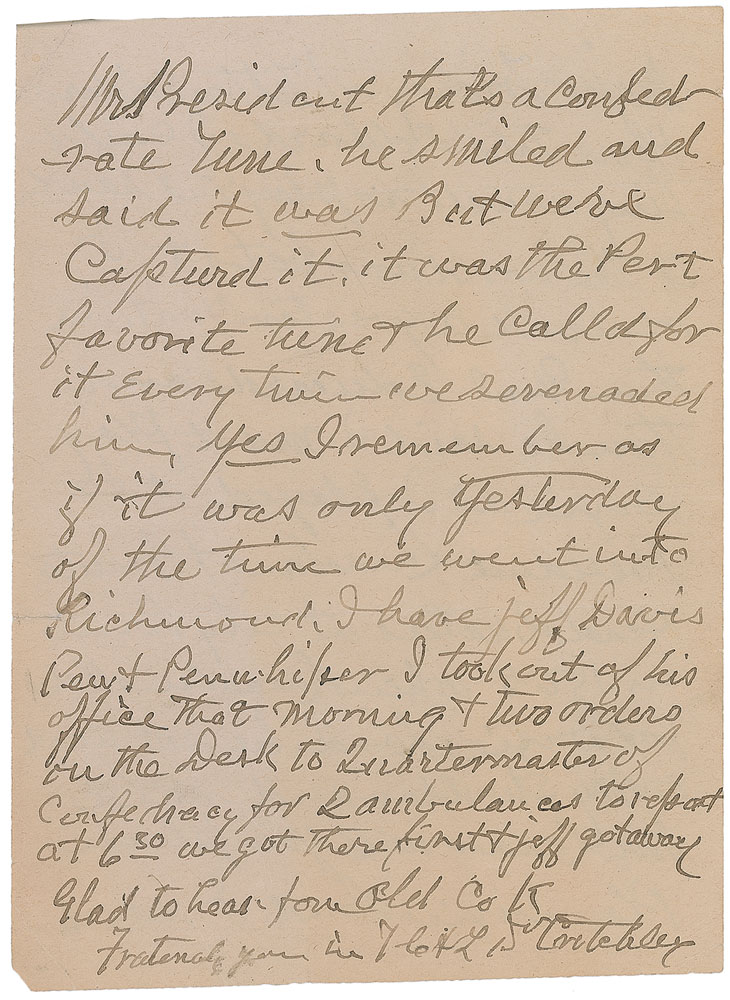 Mr President that's a Confed-
rate Tune, he smiled and
said it was But we've
Capturd it. it was the Pert
favorite tune & he Calld for
it Every time we serenaded
him, Yes I remember as
if it was only Yesterday
of the time we went into
Richmond. I have jeff Davis
Pen & Penwhiper I took out of his
office that morning & two orders
on the Desk to Quartermaster of
Confedracy for 2 ambulances to report
at 6 30 we got there first & jeff got away
Glad to hear from Old Co K
Fraternaly your in F C & L Critchley